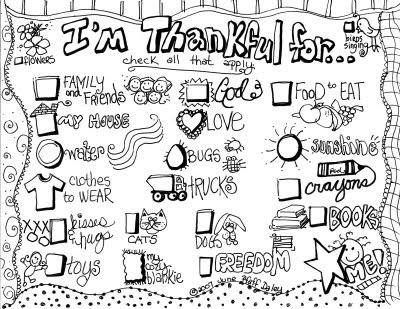 I'm Thankful for...
check all that apply:
flowers
birds singing
FAMILY and Friends
God
FOOD to EAT
MY HOUSE
LOVE
Sunshine
water
BUGS
clothes to WEAR
TRUCKS
crayons
XXX
kisses & hugs
CATS
DOGS
BOOKS
toys
my blankie
FREEDOM
ME!
© 2007 June